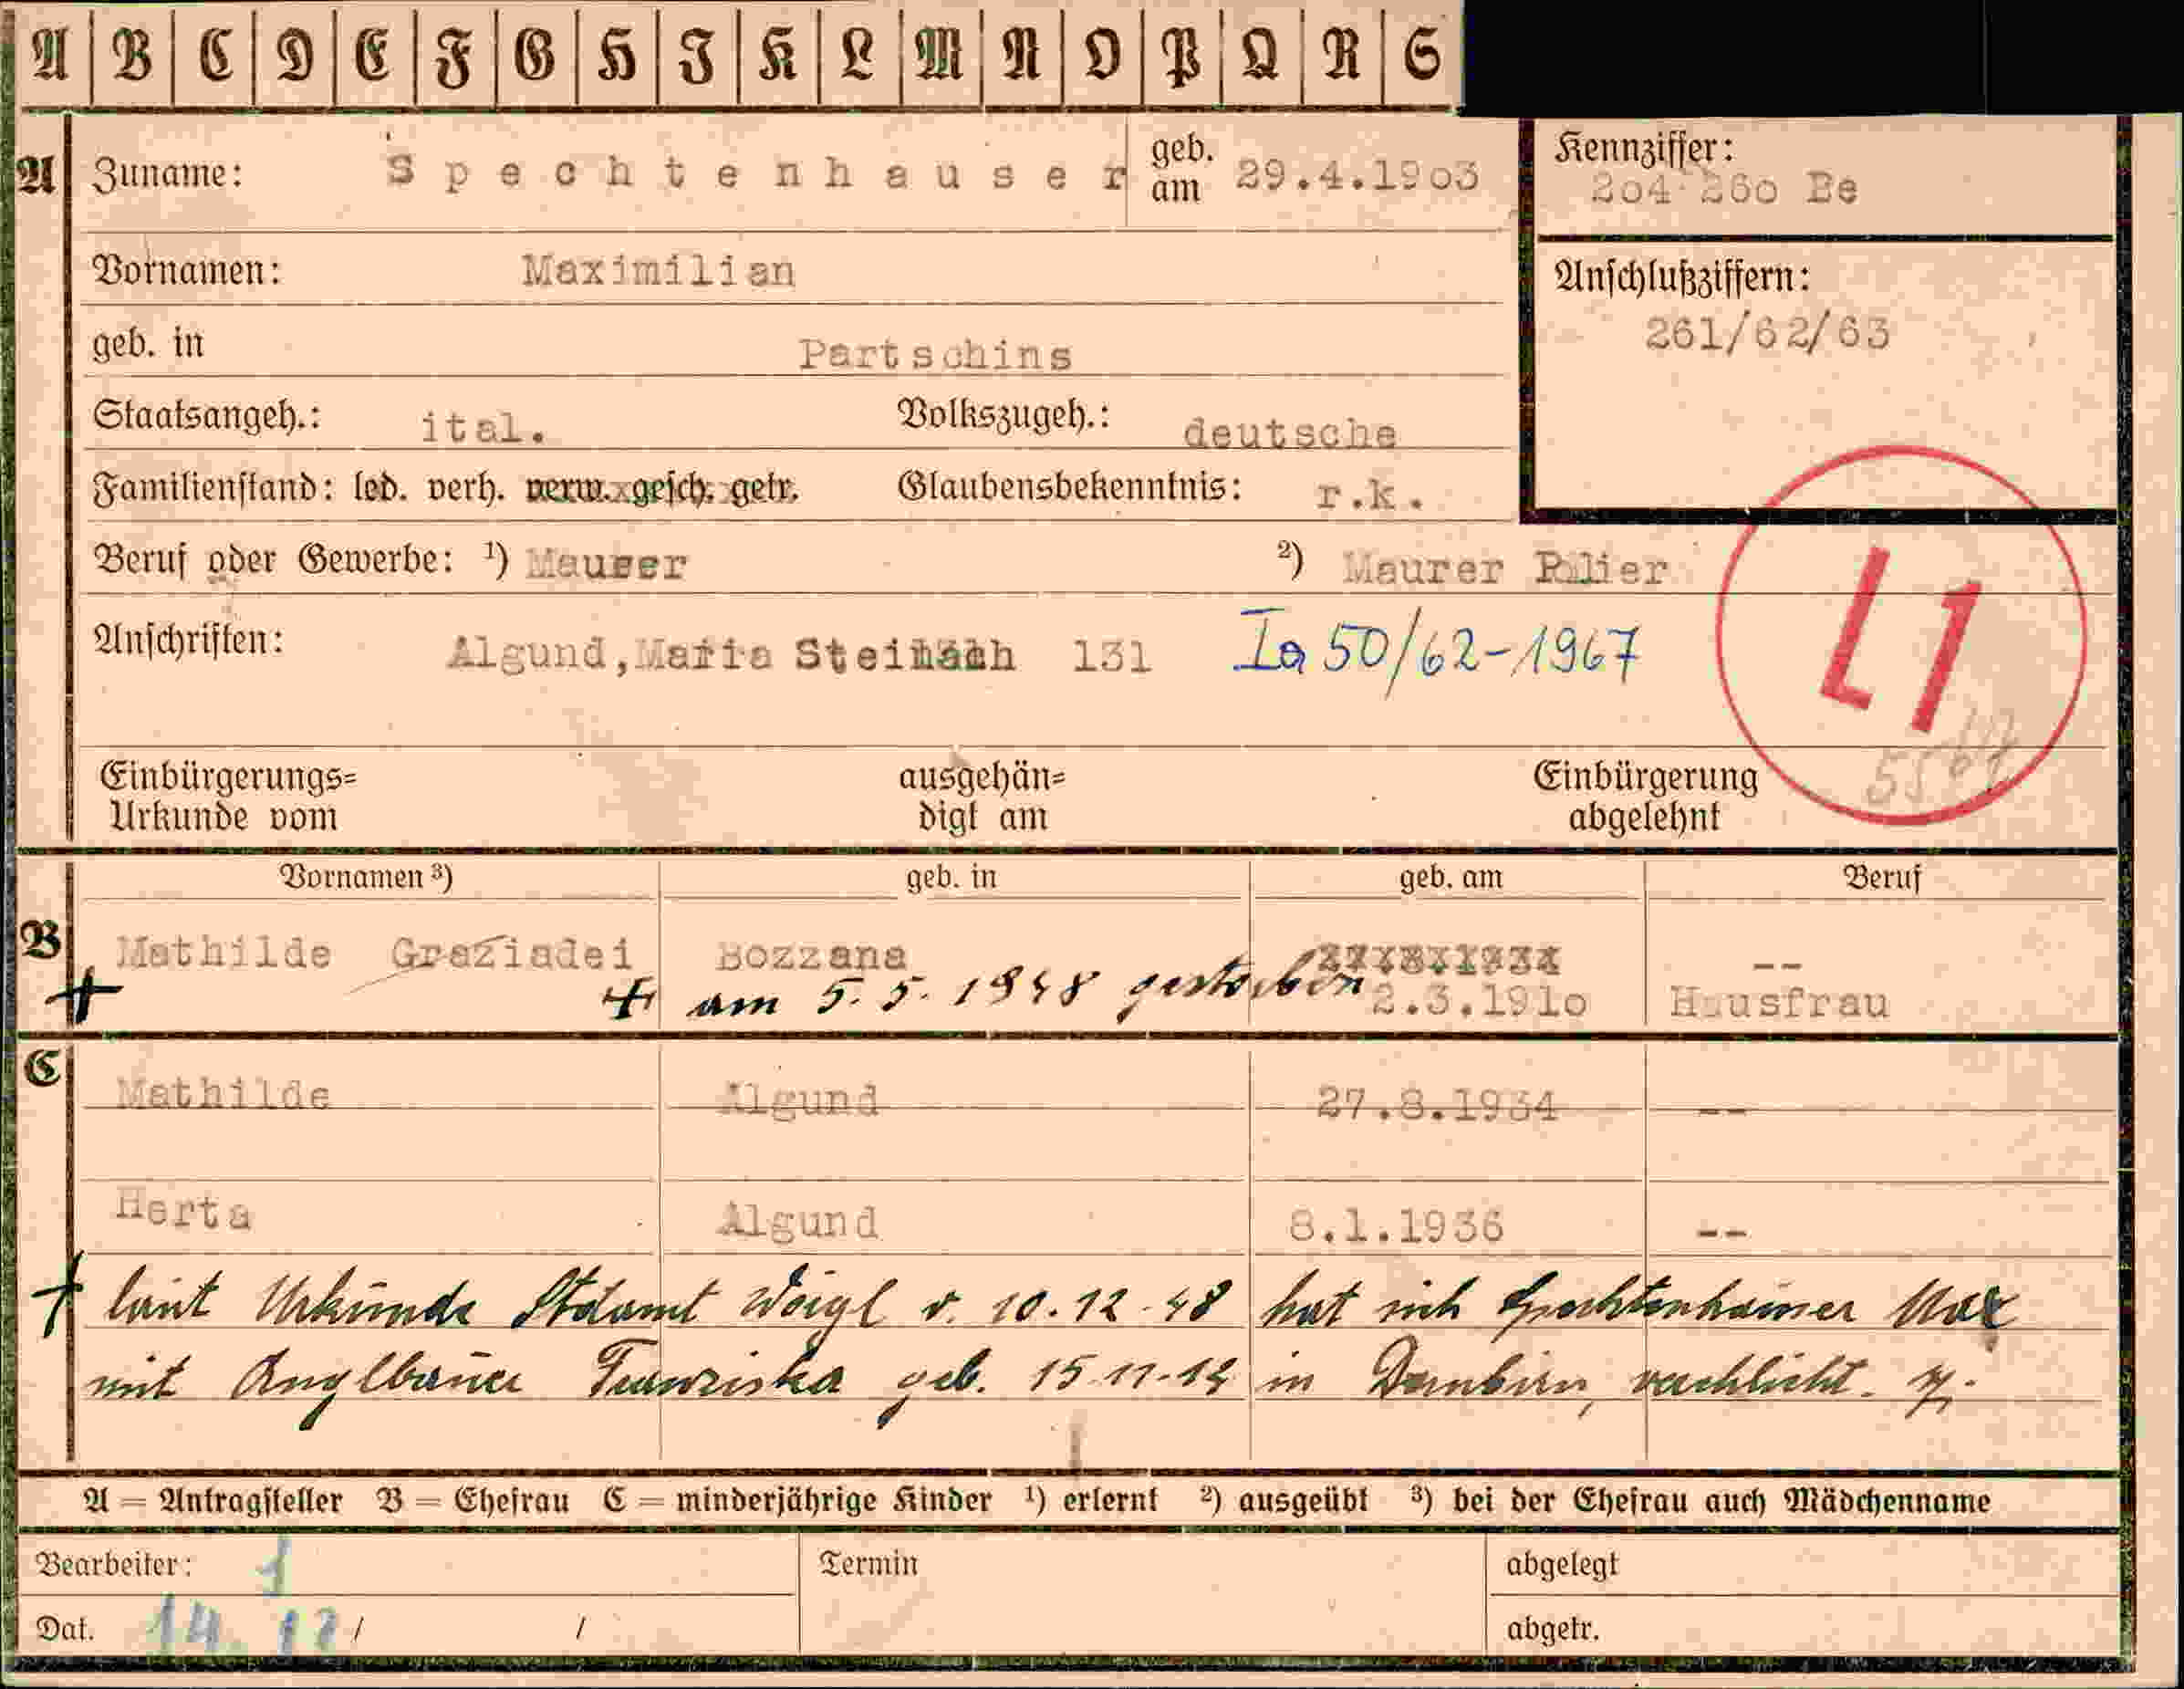 A B C D E F G H I K L M N O P Q R S
A Zuname: Spechtenhauser geb. am 29.4.1903
Kennziffer:
204 260 Be
Vornamen: Maximilian
Anschlußziffern:
261/62/63
geb. in Partschins
Staatsangeh.: ital. Volkszugeh.: deutsche
Familienstand: led. verh. verw. gesch. getr. Glaubensbekenntnis: r.k.
Beruf oder Gewerbe: ¹) Maurer ²) Maurer Polier
L1
Anschriften: Algund, Maria Steinach 131 Ia 50/62-1967
55
Einbürgerungs= ausgehän= Einbürgerung
Urkunde vom digt am abgelehnt
Vornamen ³) geb. in geb. am Beruf
B Mathilde Graziadei Bozzana 27.8.1934 --
+ + am 5. 5. 1948 gestorben 2.3.1910 Hausfrau
C Mathilde Algund 27.8.1934 --
Herta Algund 8.1.1936 --
+ laut Urkunde Stdamt Weigl v. 10.12.48 hat sich Spechtenhauser Max
mit Anglbauer Franziska geb. 15.11.14 in Dornbirn, verehlicht.
A = Antragsteller B = Ehefrau C = minderjährige Kinder ¹) erlernt ²) ausgeübt ³) bei der Ehefrau auch Mädchenname
Bearbeiter: 1 Termin abgelegt
Dat. 14. 12/ / abgetr.